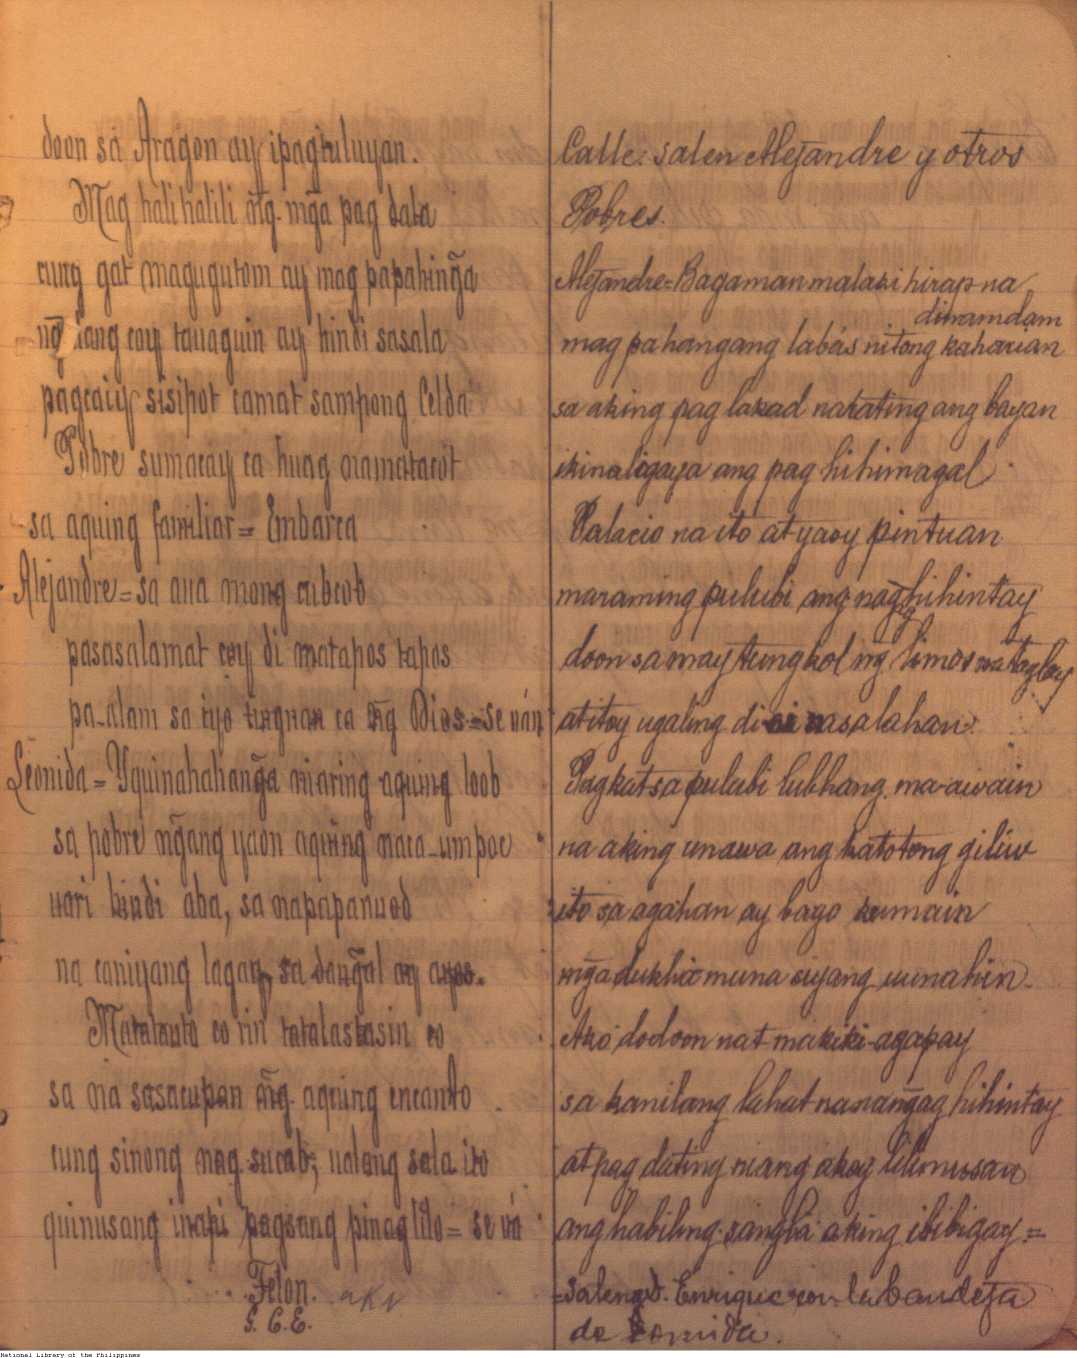 doon sa Aragon ay ipagtuluyan.
Mag halihalili m̃g. mg̃a pag data
cung gat magugutom ay mag papahing̃a
ng̃ coy tauaguin ay hindi sasala
pagcaiy sisipot camat sampong Celda
Pobre sumacay ca huag matatacot
sa aquing familiar = Embarca
Alejandre = sa aua mong cubcob
pasasalamat coy di matapos tapos
pa-alam sa iyo tingnan ca ng̃ Dios = se ván
Leonida = Yquinahahang̃a niaring aquing loob
sa pobre ng̃ang yaon aquing naca-umpoc
uari hindi aba, sa napapanuod
na caniyang lagay, sa dang̃al ay ayos.
Matatanto co rin tatalastasin co
sa na sasacupan m̃g. aquing encanto
cung sinong nag sucab, ualang sala ito
quinusang inapi pagsang pinaglilo = se vá
Telon.
G. C. E.
Calle: salen Alejandre y otros
Pobres.
Alejandre = Bagaman malaki hirap na
dinamdam
mag pahangang labás nitong kaharian
sa aking pag lakad nakating ang bayan
ikinaligaya ang pag hihimagal
Palacio na ito at yaoy pintuan
maraming pulubi ang nag hihintay
doon sa may tungkol ng limos na taglay
at itoy ugaling di nasalahan.
Pagkat sa pulubi lubhang ma-awain
na aking unawa ang katotong giliw
ito sa agahan ay bago kumain
mg̃a dukha muna siyang uunahin.
Ako dodoon nat makiki-agapay
sa kanilang lahat na nang̃ag hihintay
at pag dating niang akoy lilimusan
ang habiling sangla aking ibibigay =
= salen d. Enrique con la bandeja
de comida.
National Library of the Philippines